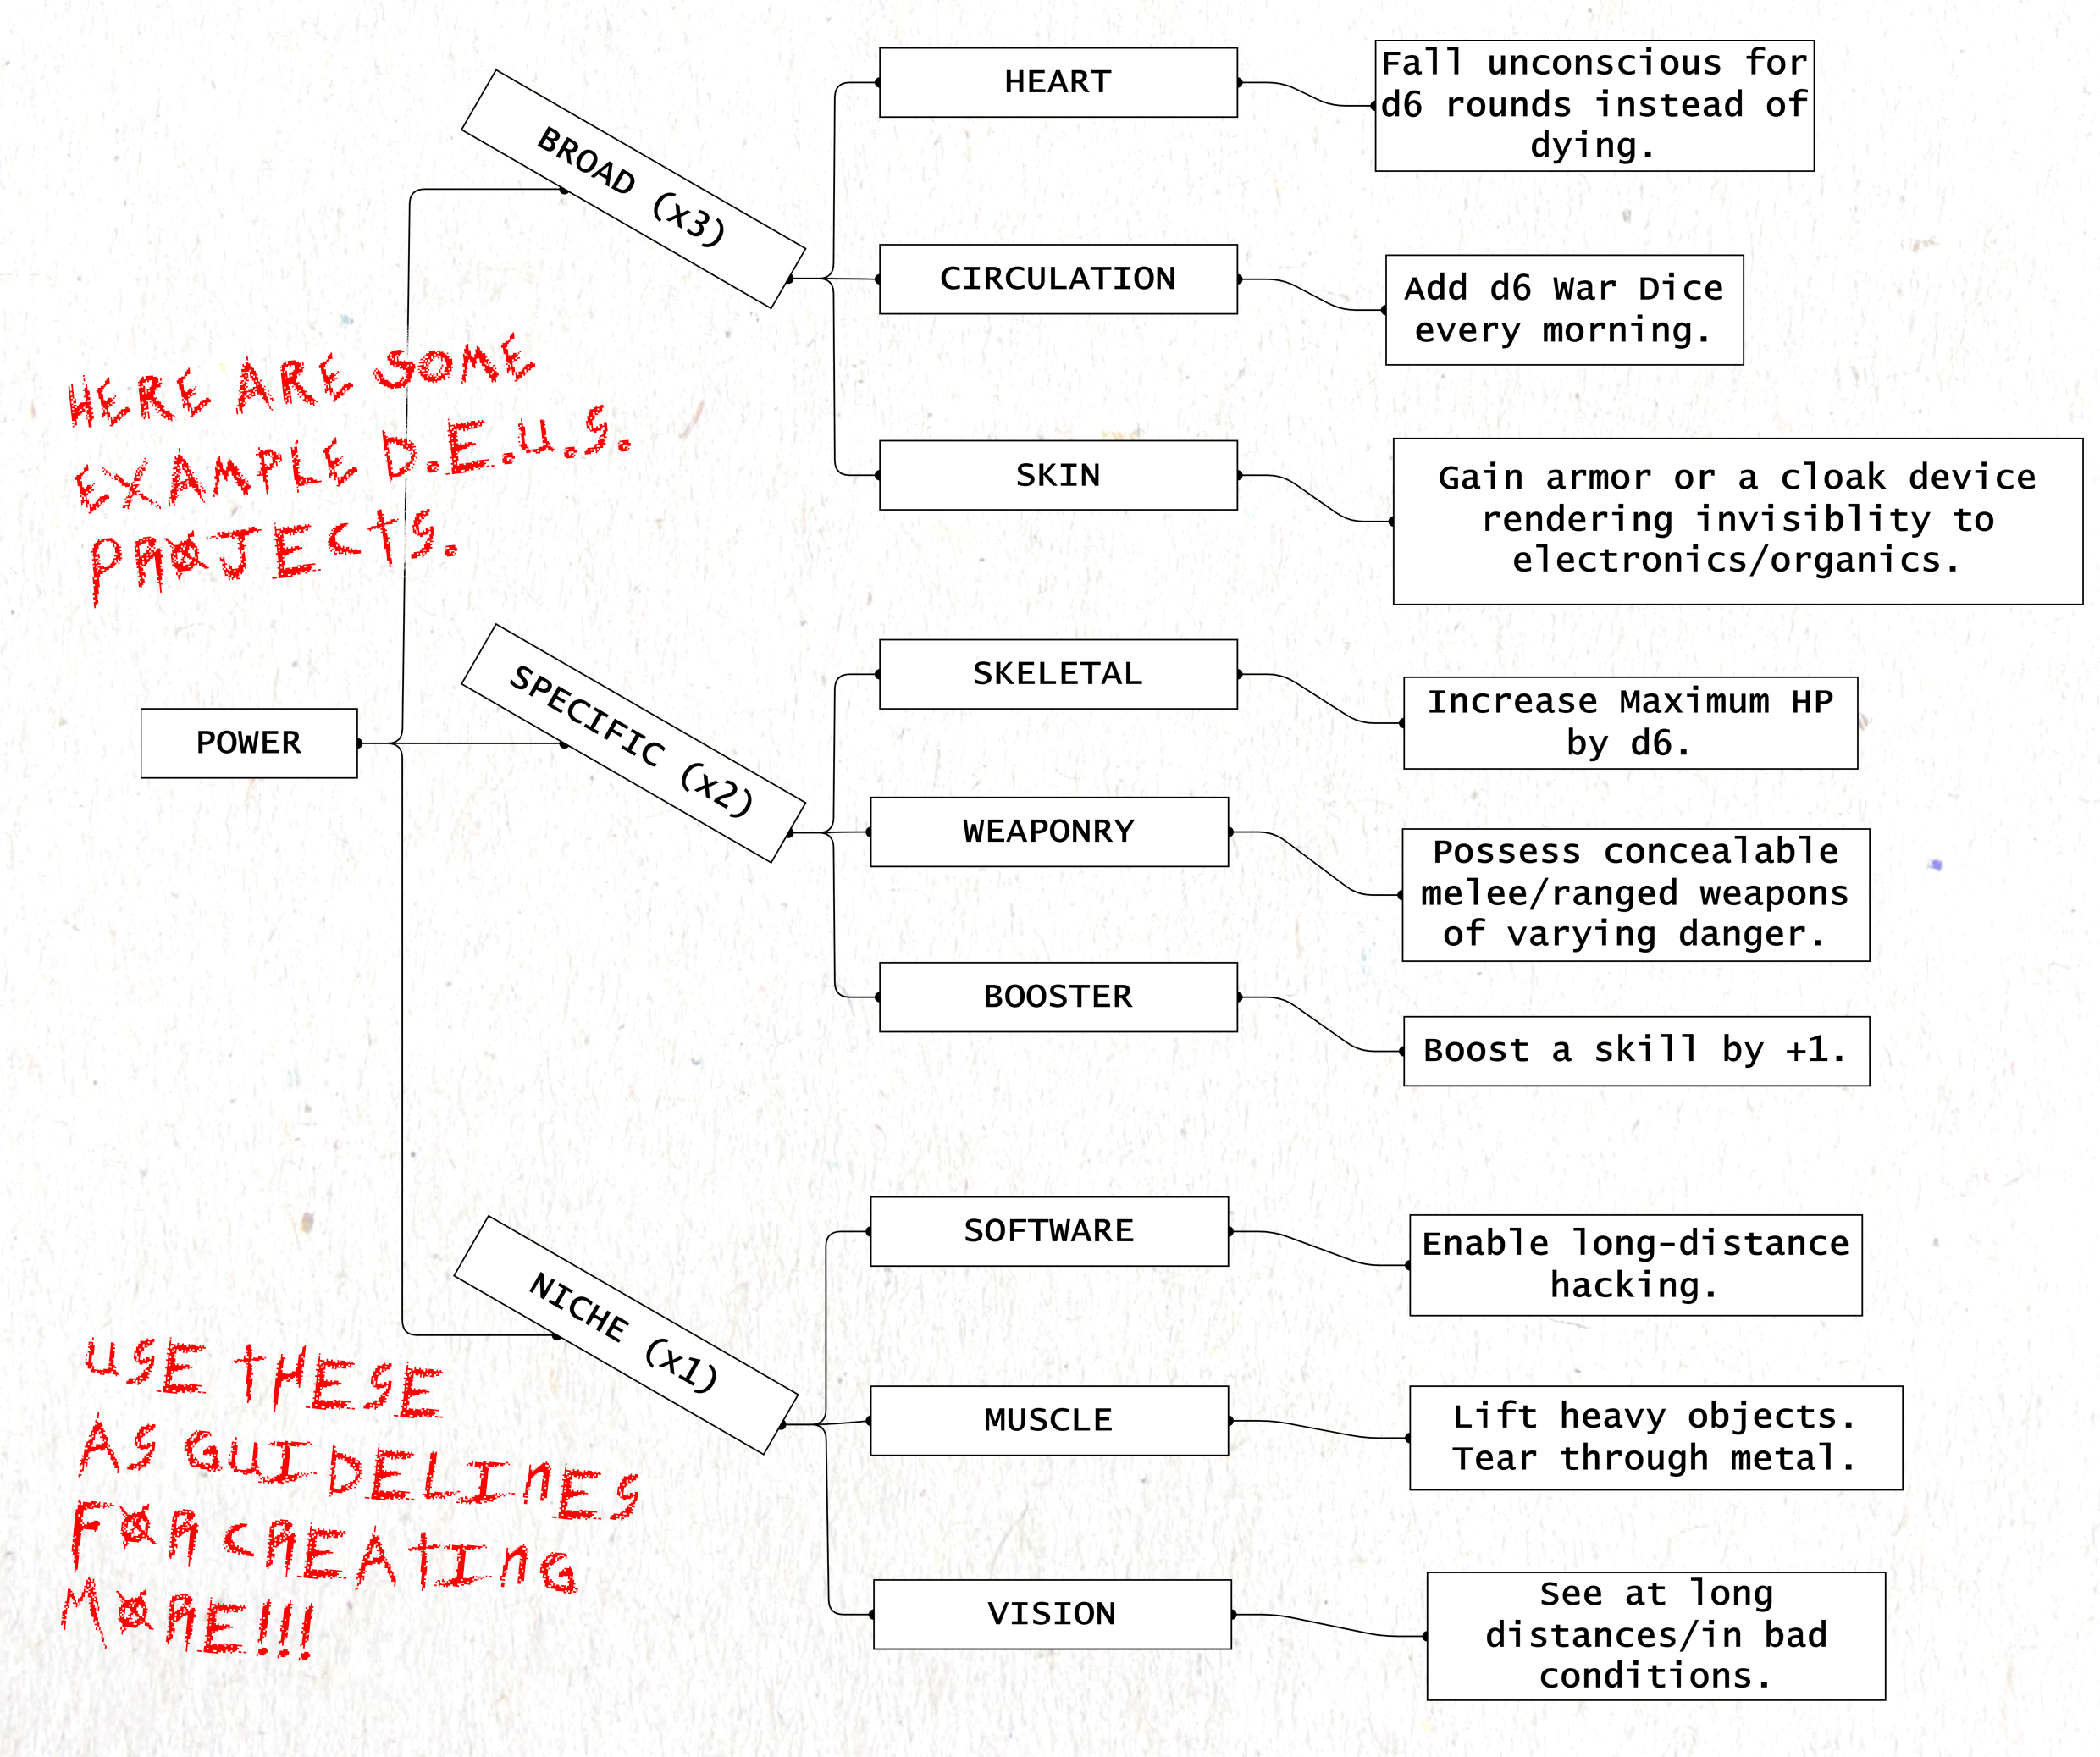 HEART
Fall unconscious for
d6 rounds instead of
dying.
BROAD (x3)
CIRCULATION
Add d6 War Dice
every morning.
HERE ARE SOME
EXAMPLE D.E.U.S.
PRØJECTS.
SKIN
Gain armor or a cloak device
rendering invisiblity to
electronics/organics.
POWER
SPECIFIC (x2)
SKELETAL
Increase Maximum HP
by d6.
WEAPONRY
Possess concealable
melee/ranged weapons
of varying danger.
BOOSTER
Boost a skill by +1.
NICHE (x1)
SOFTWARE
Enable long-distance
hacking.
MUSCLE
Lift heavy objects.
Tear through metal.
VISION
See at long
distances/in bad
conditions.
USE THESE
AS GUIDELINES
FØR CREATING
MØRE!!!